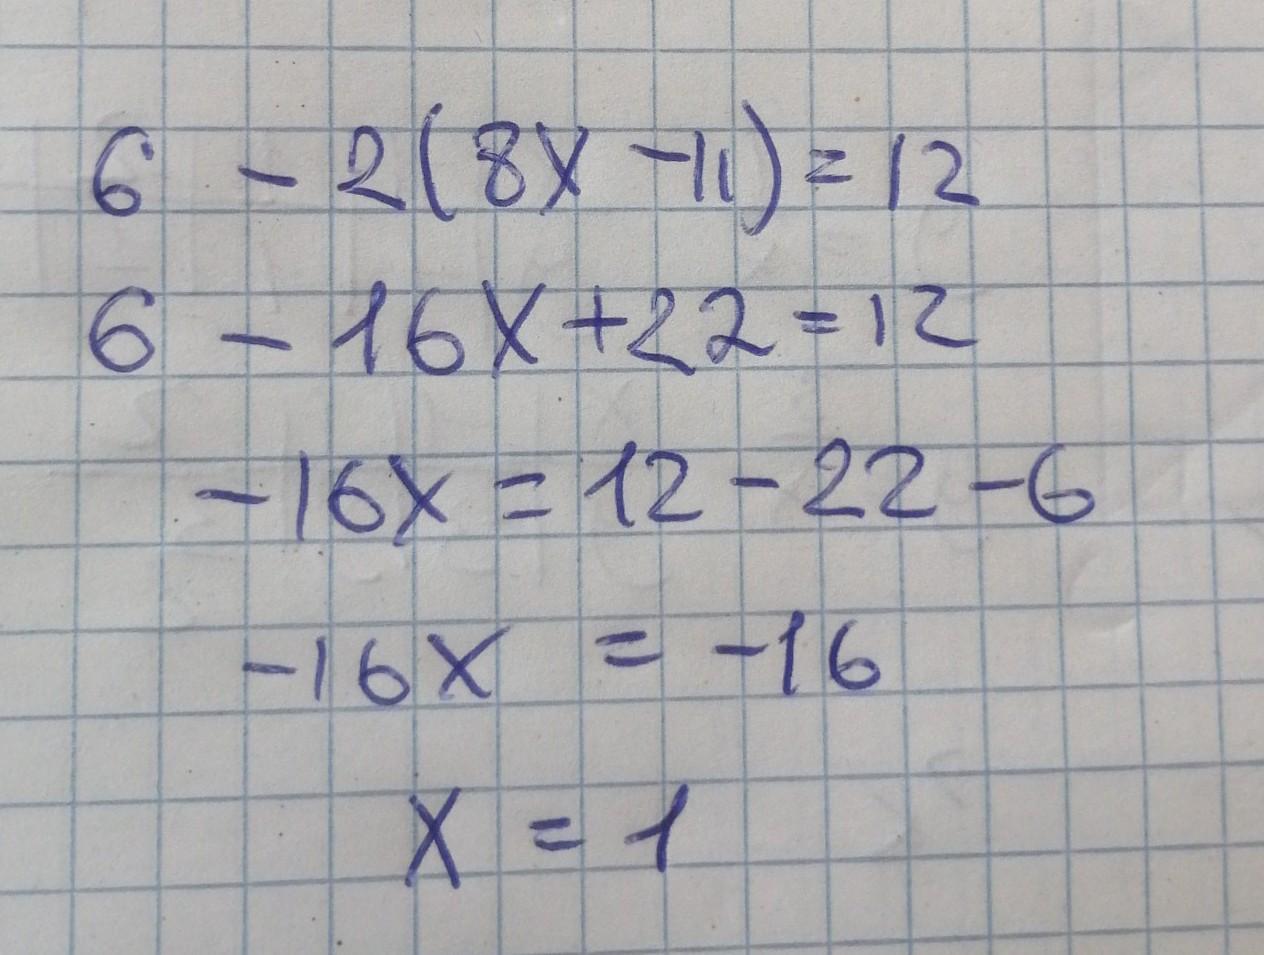 6 - 2(8x - 11) = 12
6 - 16x + 22 = 12
-16x = 12 - 22 - 6
-16x = -16
x = 1